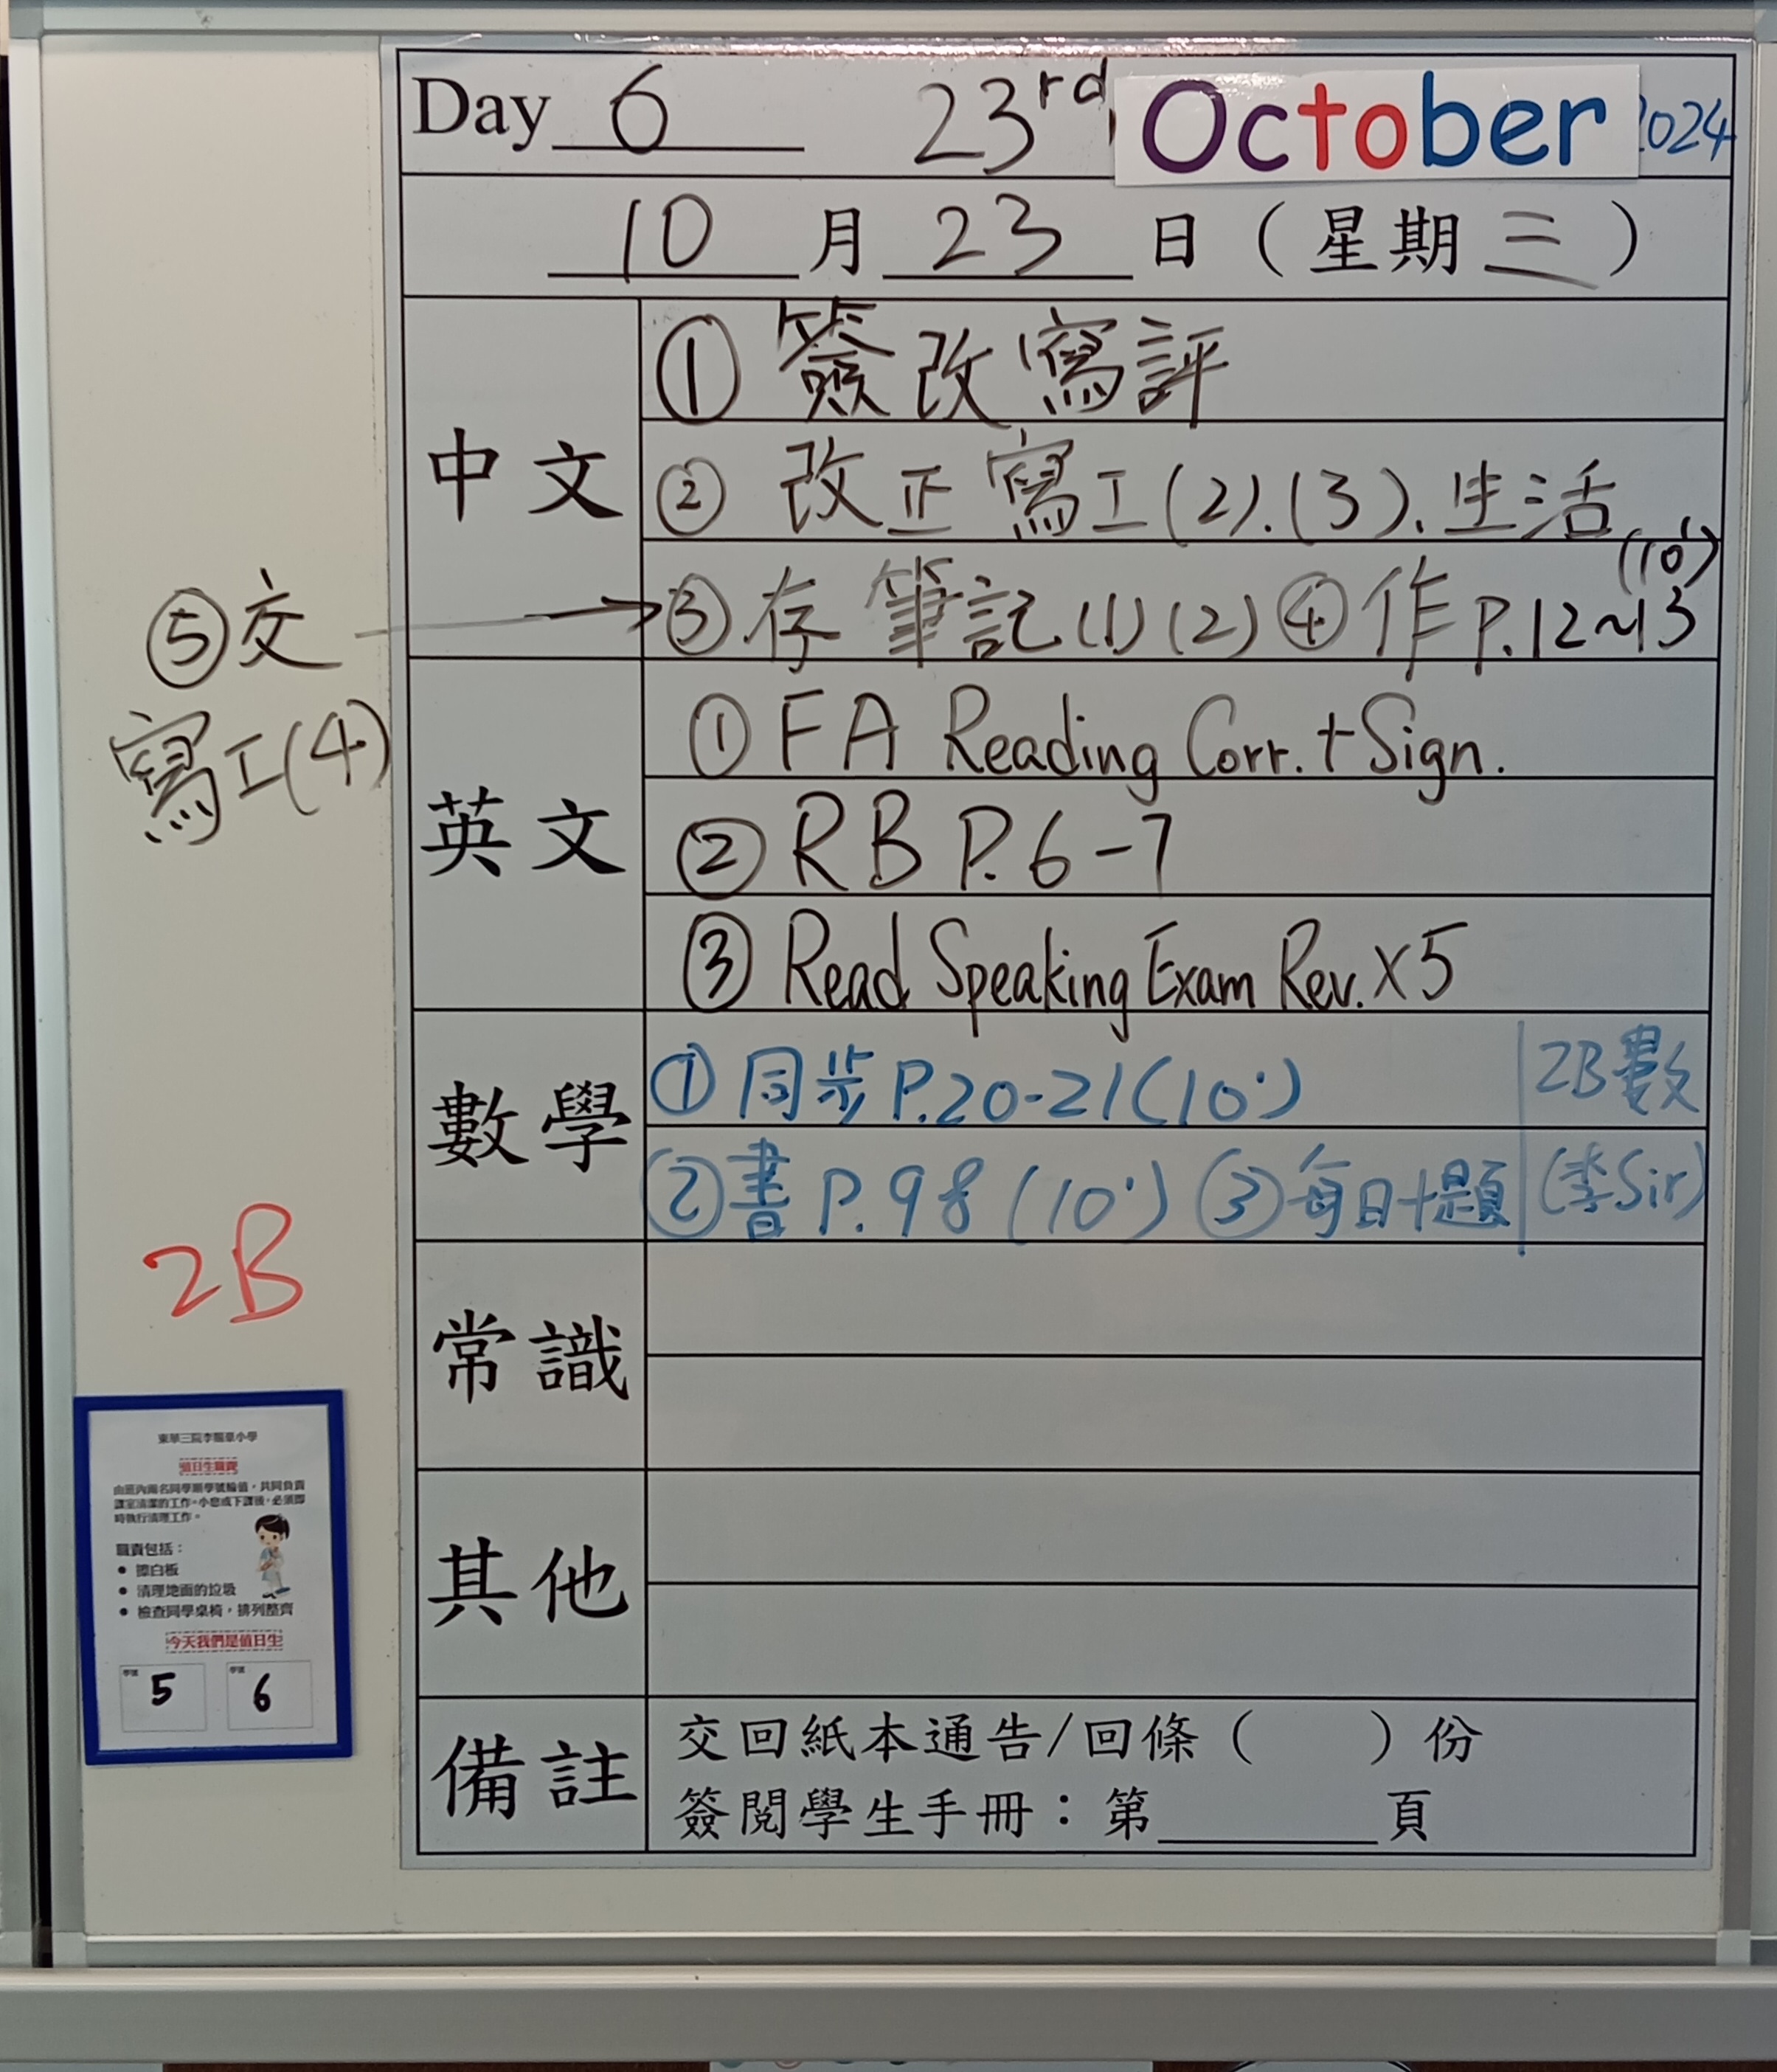 Day 6 23rd, October 2024
10 月 23 日（星期 三）
中文
① 簽改寫評
② 改正寫工(2).(3)、生活
③存筆記(1)(2) ④作P.12~13 (10')
⑤交
寫工(4)
英文
① FA Reading Corr. + Sign.
② RB P.6-7
③ Read Speaking Exam Rev. x5
數學
① 同步P.20-21(10') 2B數
②書P.98(10') ③每日十題 (李Sir)
2B
常識
其他
備註
交回紙本通告/回條（ ）份
簽閱學生手冊：第 頁
東華三院李賜豪小學
值日生職責
由班內兩名同學順學號輪值，共同負責
課室清潔的工作。小息或下課後，必須即
時執行清理工作。
職責包括：
• 擦白板
• 清理地面的垃圾
• 檢查同學桌椅，排列整齊
今天我們是值日生
學號 5 學號 6